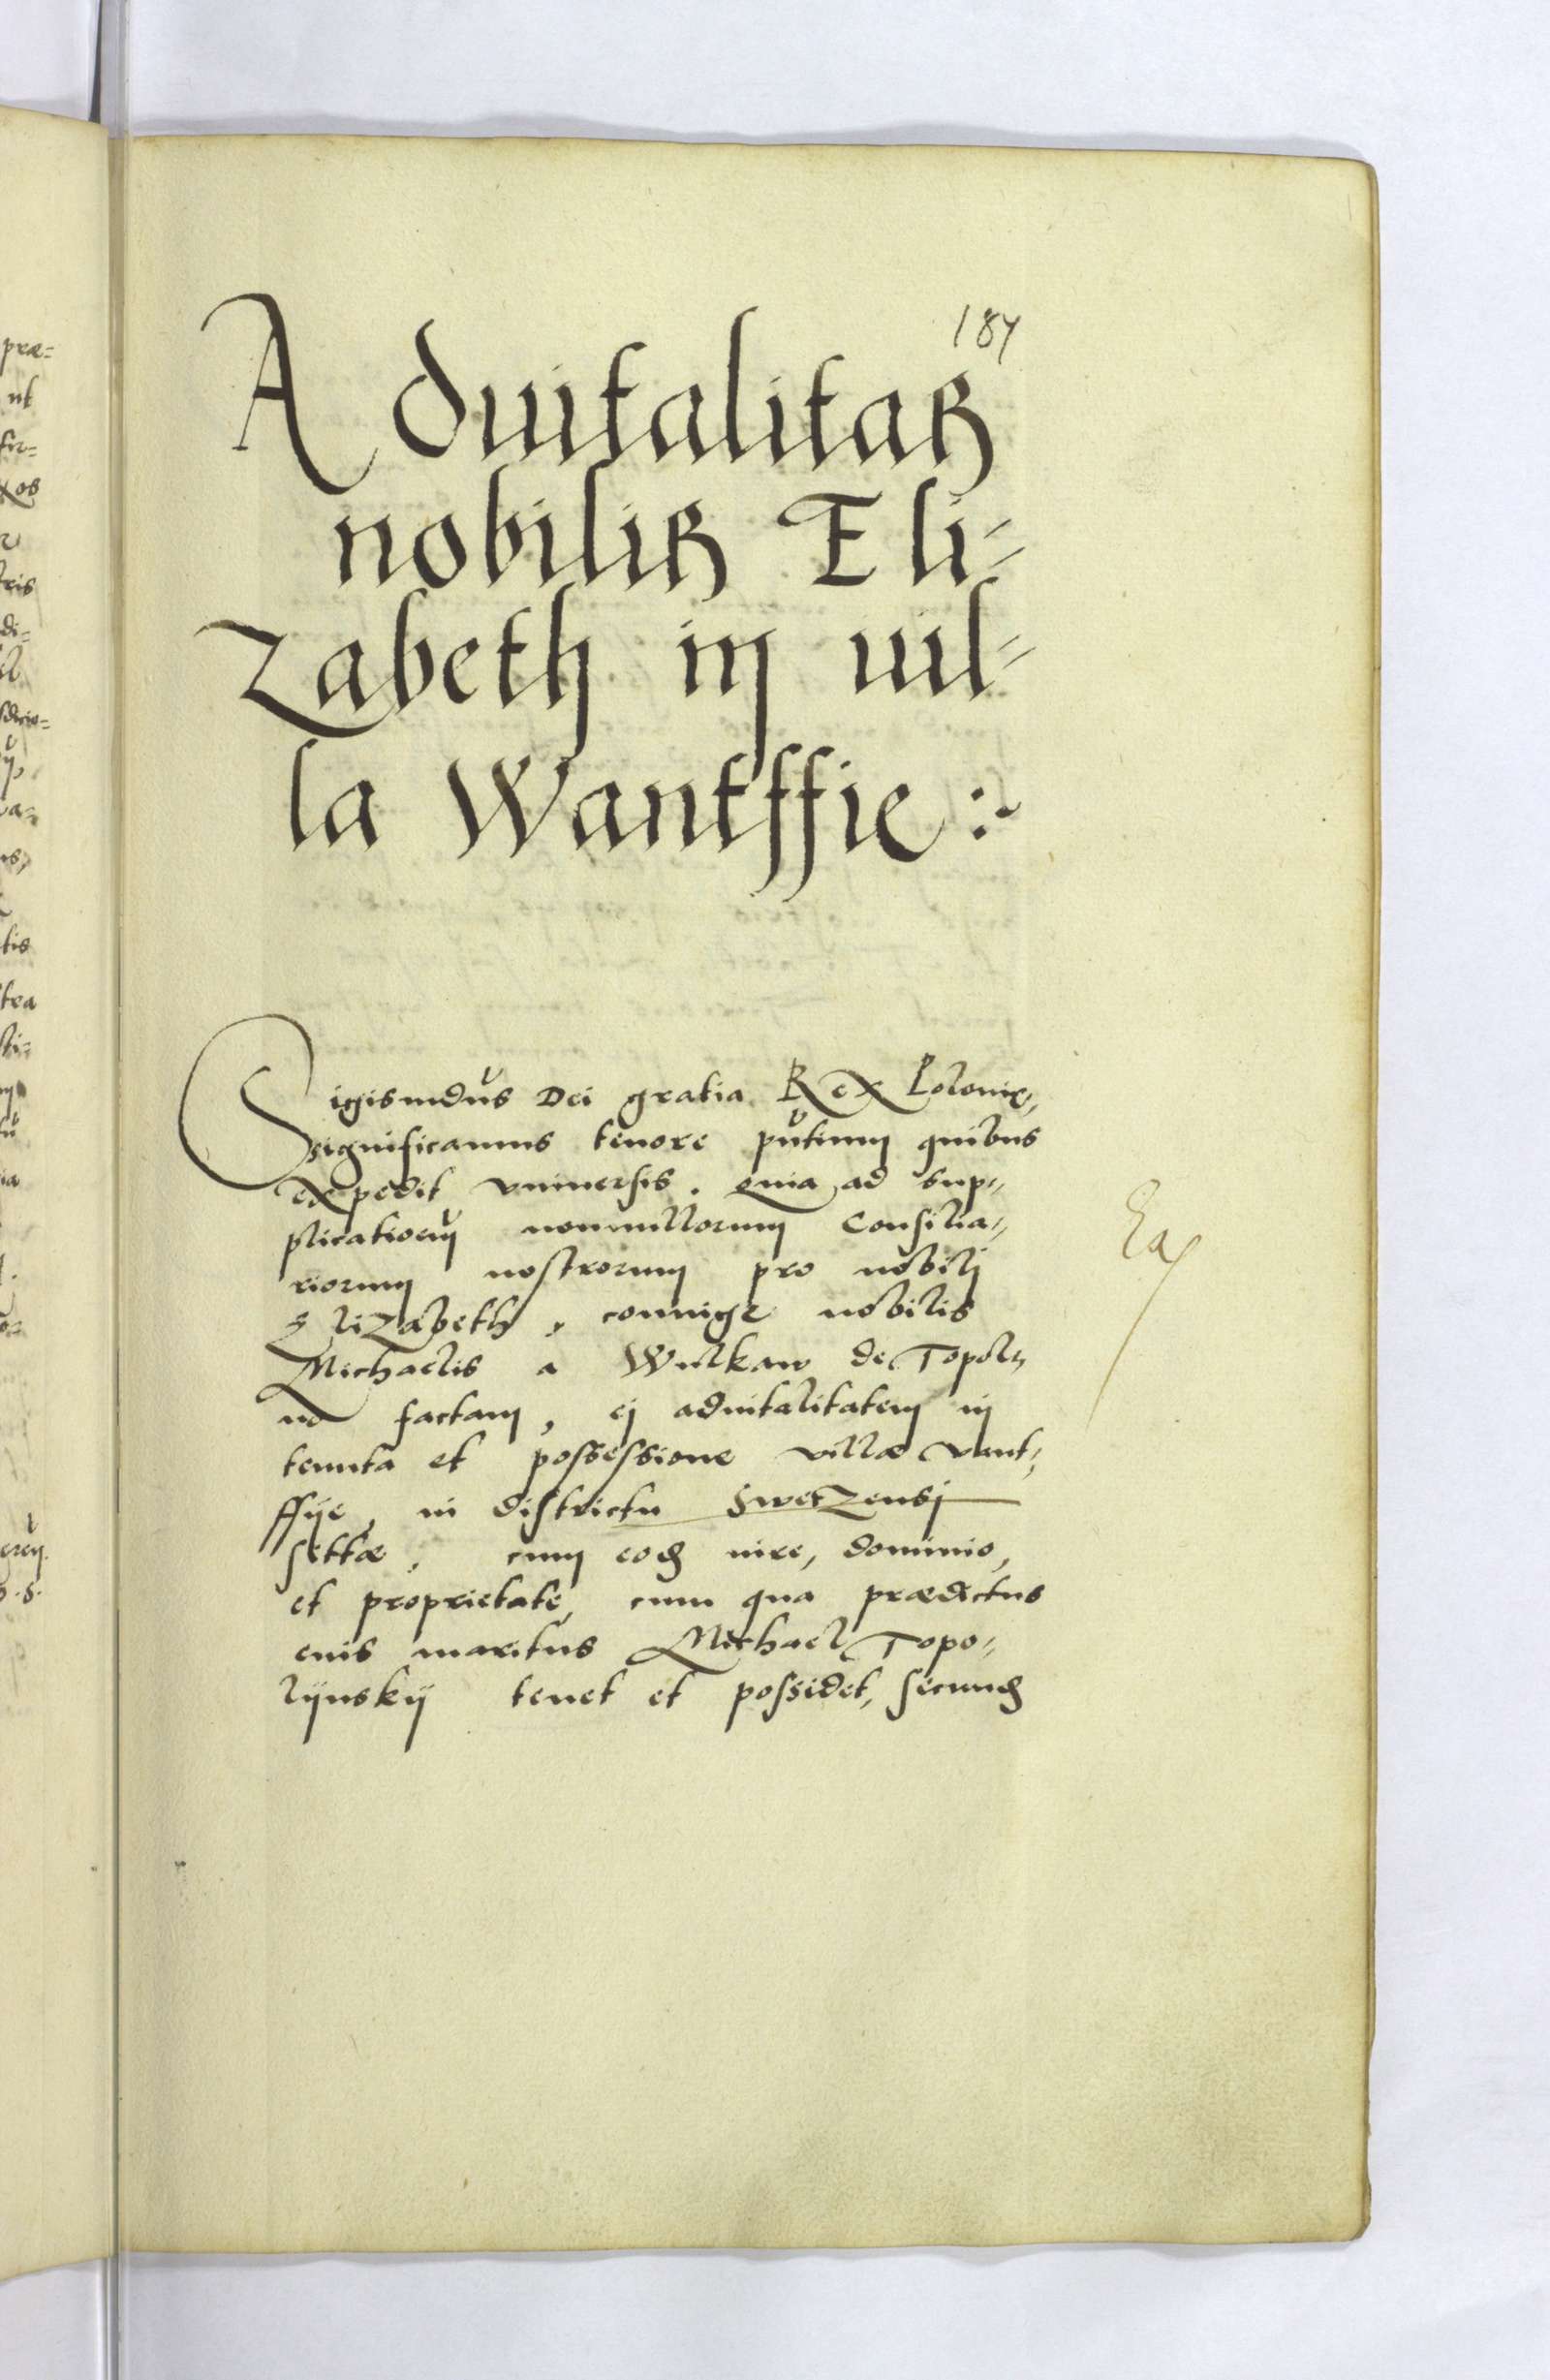 187
Aduitalitas
nobilis Eli-
zabeth in uil-
la Wantffie :~
Sigismdus Dei gratia Rex Poloniæ,
significamus tenore pntium quibus
expedit vniuersis. Quia ad sup-
plicationem nonnullorum Consilia-
riorum nostrorum pro nobili
Elizabeth, coniuge nobilis
Michaelis a Wulkaw de Topol-
no factam, ei aduitalitatem in
tenuta et possessione villæ Vant-
ffije, in districtu Swetzensi
sittæ, cum eod iure, dominio,
et proprietate, cum qua prædictus
eius maritus Michael Topo-
lijnskij tenet et possidet, secund